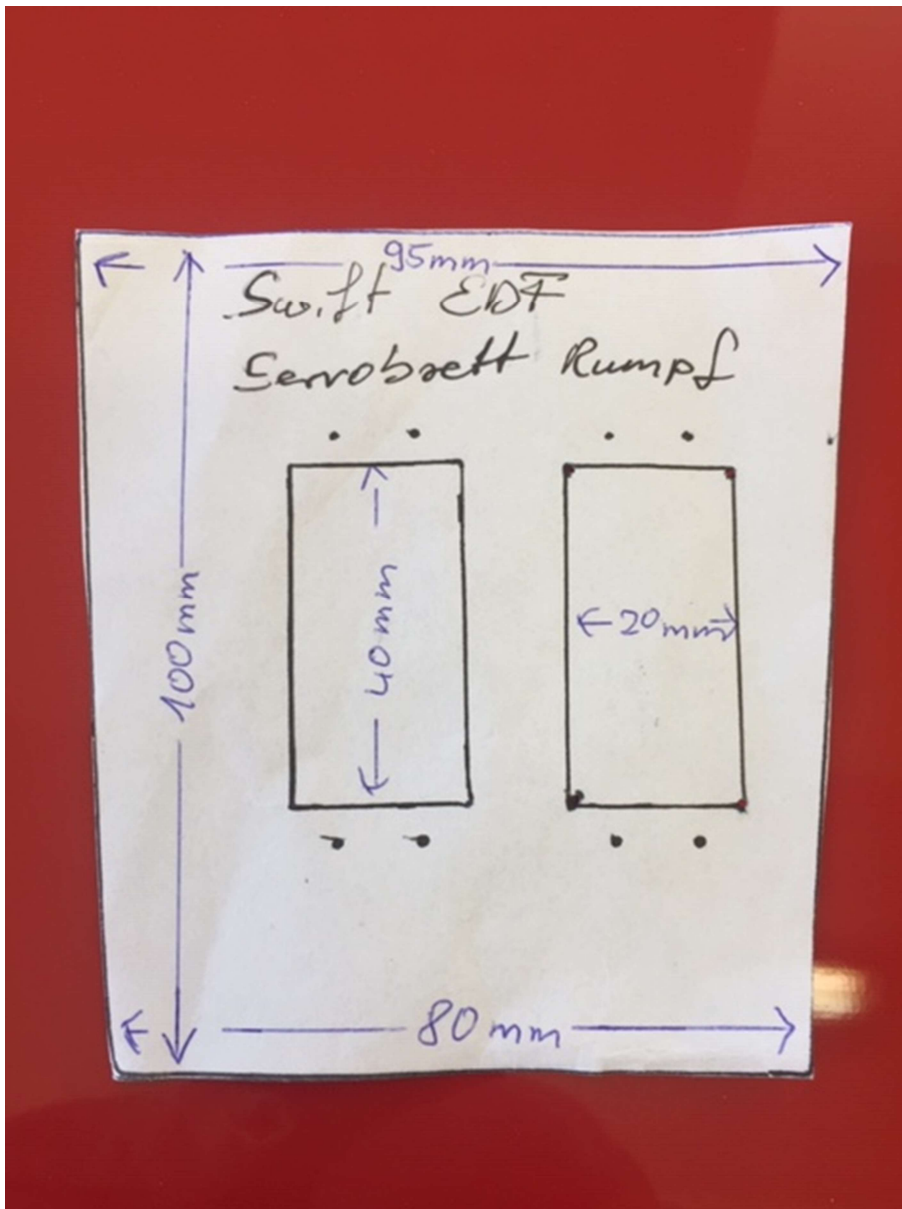 95mm
Swift EDF
Servobrett Rumpf
100mm
40mm
20mm
80mm